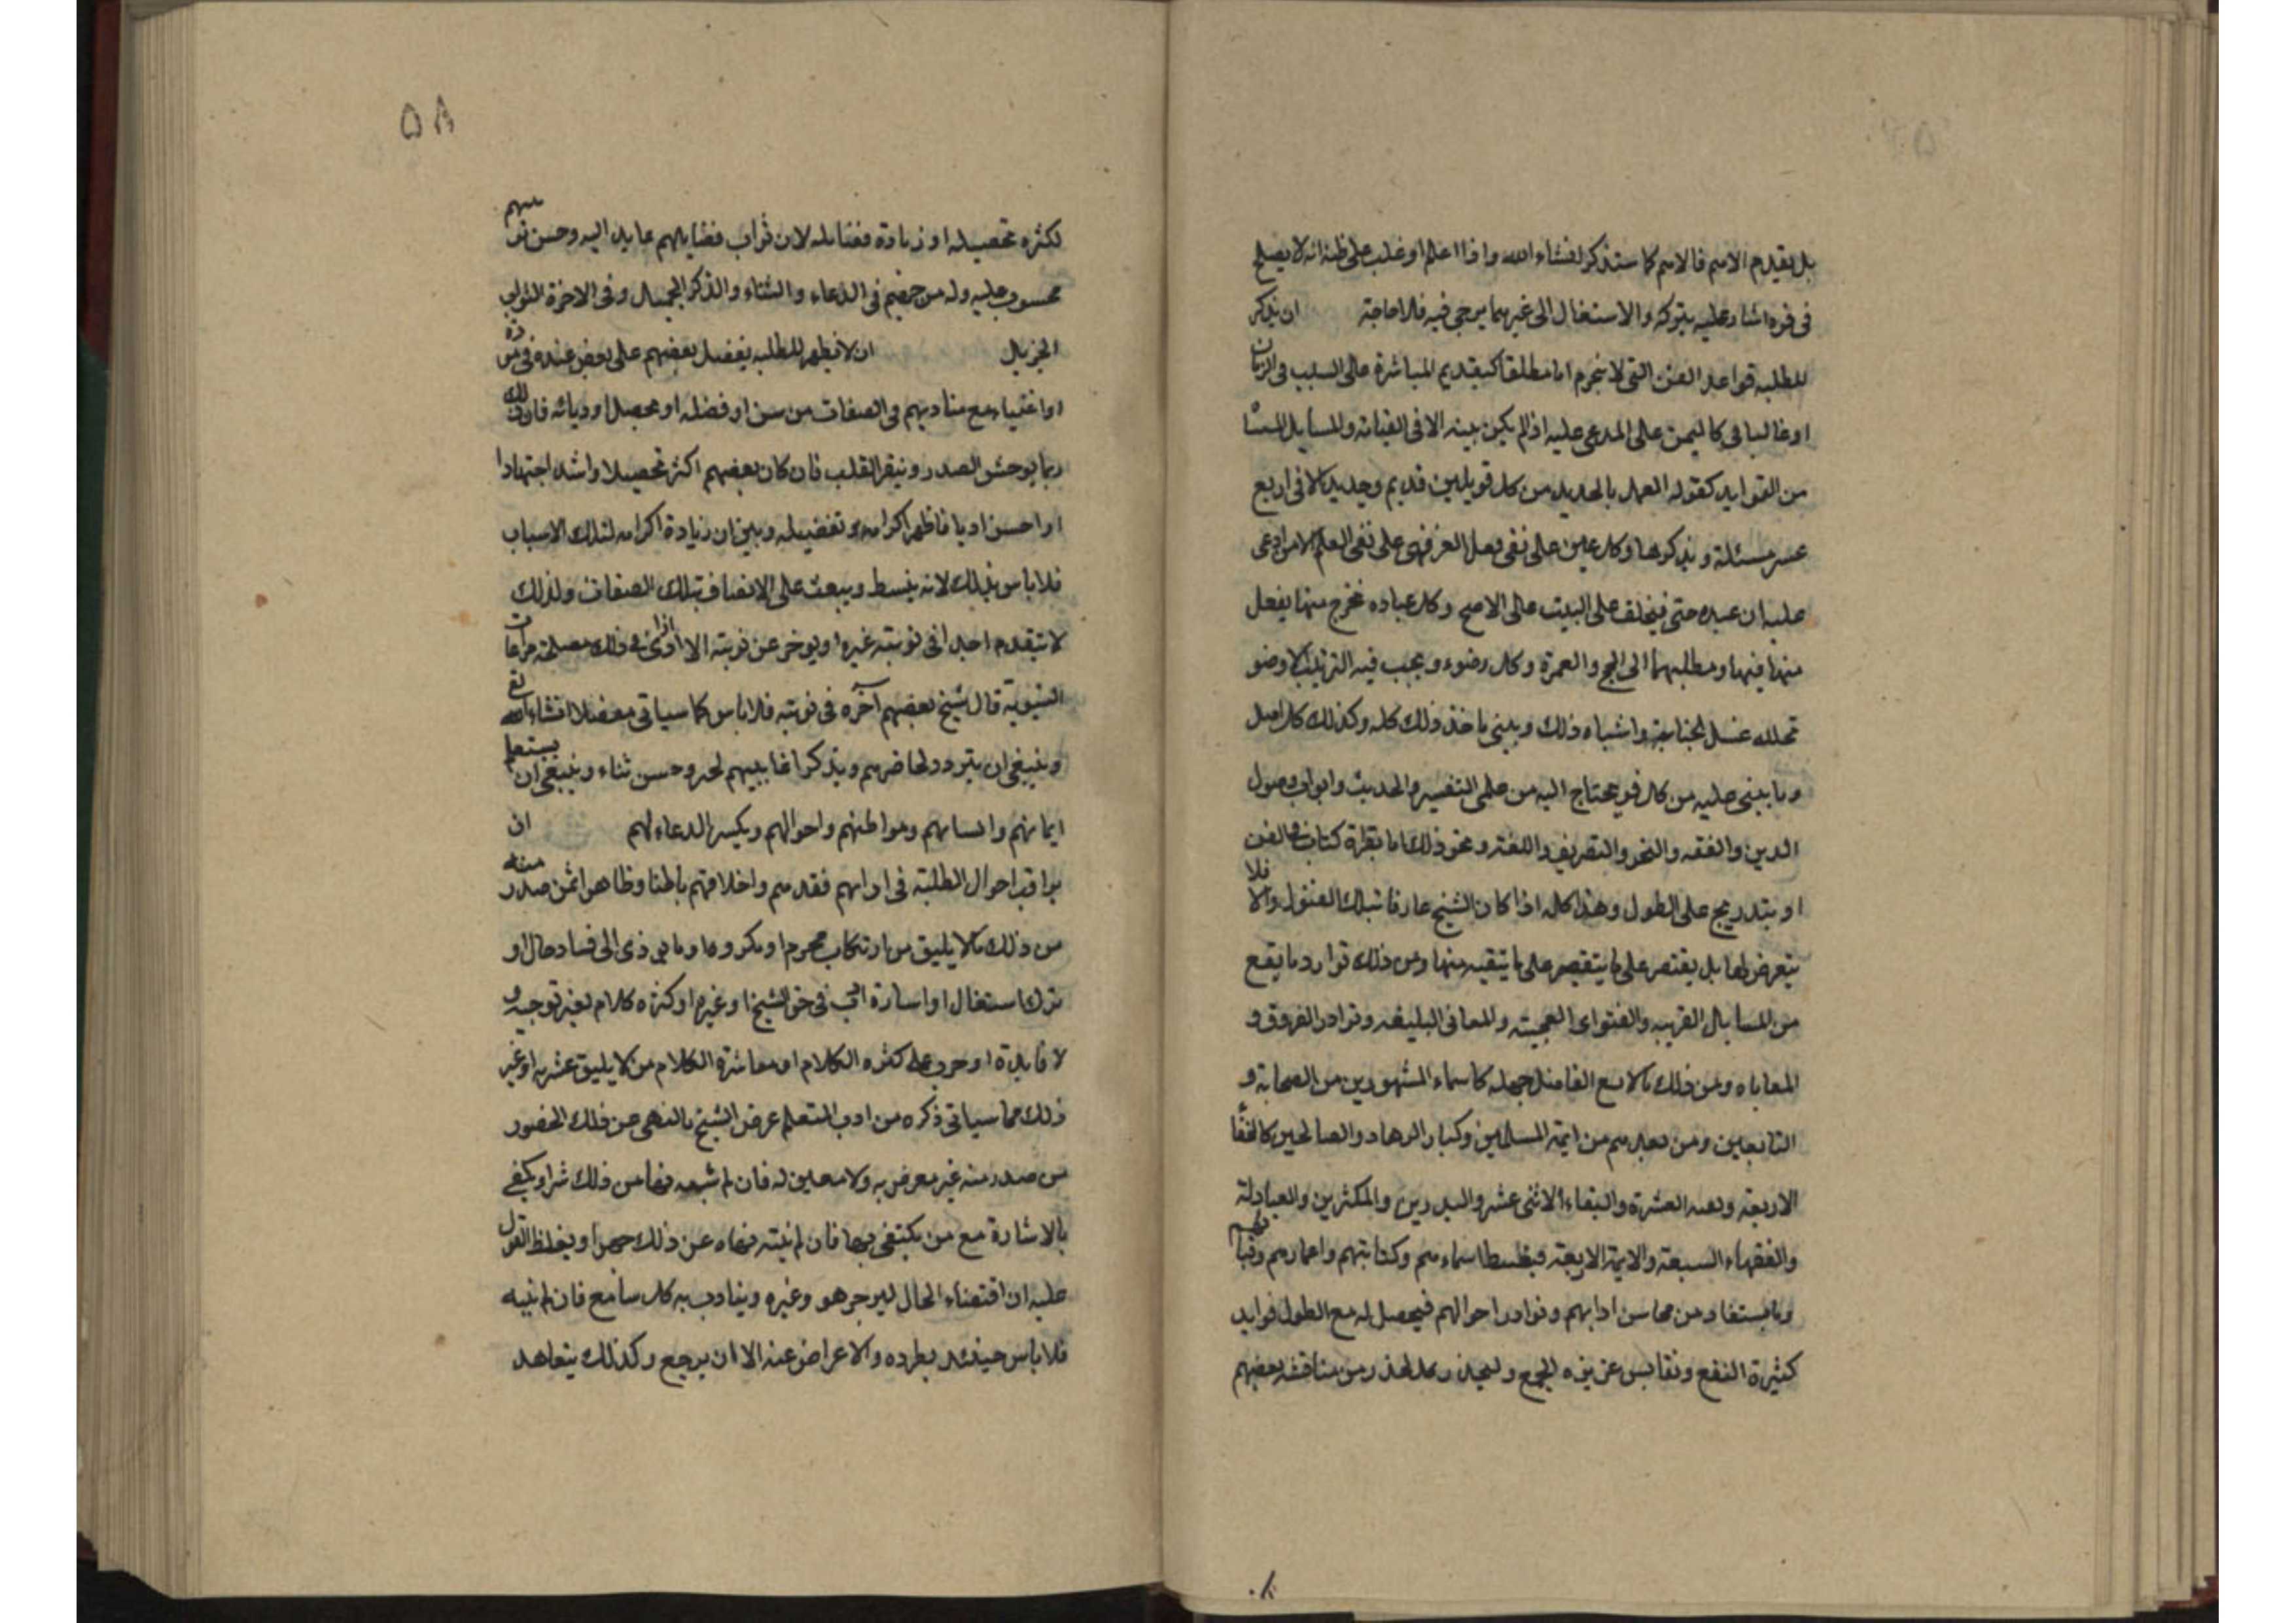 بل يقدم الاهم فالاهم كما ستذكر انشاء الله واذا اعلم او غلب على ظنه انه لا يصلح
فى فن اشار عليه بتركه والاستغال الى غيره مما يرجى فيه فلاحاجته ان يذكر
للطلبه قواعد الفن التى لا ينخرم اما مطلقا كيقديم المباشرة على السبب فى الزمان
او غالبا فى كاليمين على المدعى عليه اذالم يكن بينه الا فى القيامة والمسايل المستثنا
من القوايد كقوله العمل بالجديد من كل قوليين قديم وجديد الا فى اربع
عسر مسئلة ويذكرها وكل يمين على نفى فعل الغير فهى على نفى العلم الا من ادعى
عليه ان عبده جنى فيخلف على البيت على الاصح وكل عباده يخرج منها يفعل
منها فيها ومطلبهما الى الحج والعمرة وكل وضوء ويجب فيه الترتيب الا وضو
تخلله غسل الجنابته واشباه ذلك ويبنى ماخذ ذلك كله وكذلك كل اصل
وما يبنى عليه من كل فن يحتاج اليه من علمى التفسير والحديث وابواب وصول
الدين والفقه والنحو والتصريف واللغة ونحو ذلك اما بقراة كتاب فى الفن
او بتدريج على الطول وهذا كله اذا كان الشيخ عارفا بتلك الفنون والا فلا
يتعرض لها بل يقتصر على ما يتقيه منها ومن ذلك نوارد ما يقع
من المسايل الغريبه والفتواى العجيبته والمعانى البليغه ونوادر الفروق و
المعاياه ومن ذلك مالا يسع الفاضل جهله كاسماء المشهورين من الصحابة و
التابعين ومن بعدهم من ايمة المسلمين وكبار الزهاد والصالحين كالخلفا
الاربعة وبعيه العشرة والنقباء الاثنى عشر والبدريين والمكثرين والعبادلة
والفقهاء السبعة والايمة الاربعة فيظبط اسماءهم وكنايتهم واعمارهم وفياتهم
وما يستفاد من محاسن ادابهم ونوادر احوالهم فيحصل له مع الطول فوايد
كثيرة النفع ونفايس عزيزه الجمع وليحذر كل الحذر من مناقشة بعضهم
٥٨
لكثره تحصيله او زيادة فضايله لان ثواب فضايلهم عايد اليه وحسن تربيتهم
محسوب عليه وله من جهتهم فى الدعاء والثناء والذكر الجميل وفى الاخرة الثواب
الجزيل ان لا يظهر للطلبه يفضل بعضهم على بعض عنده فى مودة
او اعتياء مع تساويهم فى الصفات من سن او فضله او تحصيل او ديانه فان ذلك
ربما يوحش الصدر وينفر القلب فان كان بعضهم اكثر تحصيلا واشد اجتهادا
او احسن ادبا فاظهر اكرامه وتفضيله وبين ان زيادة اكرامه لتلك الاسباب
فلا باس بذلك لانه ينسط ويبعث على الاتصاف بتلك الصفات ولذلك
لا يتقدم احدا فى نوبته غيره او يوخر عن نوبته الا اذا راى فى ذلك مصلحة مراعات
قال شيخ بعضهم آخره فى نوبته فلا باس كما سياتى مفصلا انشاء الله تع
وينبغى ان يتردد لحاضرهم ويذكر اغايبهم لخير وحسن ثناء وينبغى ان يستعلم
ايمانهم وانسابهم ومواطنهم واحوالهم ويكيسر الدعاء لهم ان
يراقب احوال الطلبة فى ادابهم فقدهم واخلاقهم باطنا وظاهرا فمن صدر منه
من ذلك مالا يليق من ارتكاب محرم او مكروها وما يوذى الى فساد حال او
ترك استغال او اسارة ادب فى حق الشيخ او غيره او كثره كلام لغير توجيه و
لا فايدة او حرص على كثره الكلام او معاشرة الكلام من لا يليق عشرته او غير
ذلك مما سياتى ذكره من ادب المتعلم عرض الشيخ بالنهى عن ذلك الحضور
من صدر منه غير معرض به ولا معين له فان لم ينته نهاه من ذلك شرا ويكيفى
بالاشارة مع من يكتفى بها فان لم ينته نهاه عن ذلك جهرا ويغلظ القول
عليه ان اقتضاء الحال لينزجر هو وغيره ويتادب به كل سامع فان لم ينيه
فلا باس حينئذ بطرده والاعراض عنه الا ان يرجع وكذلك يتعاهد